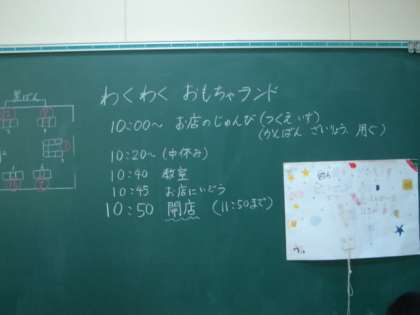 黒ばん
わくわく おもちゃランド
10:00～ お店のじゅんび(つくえ いす)
(かんばん ざいりょう、用ぐ)
10:20～(中休み)
10:40 教室
10:45 お店にいどう
10:50 開店 (11:50まで)